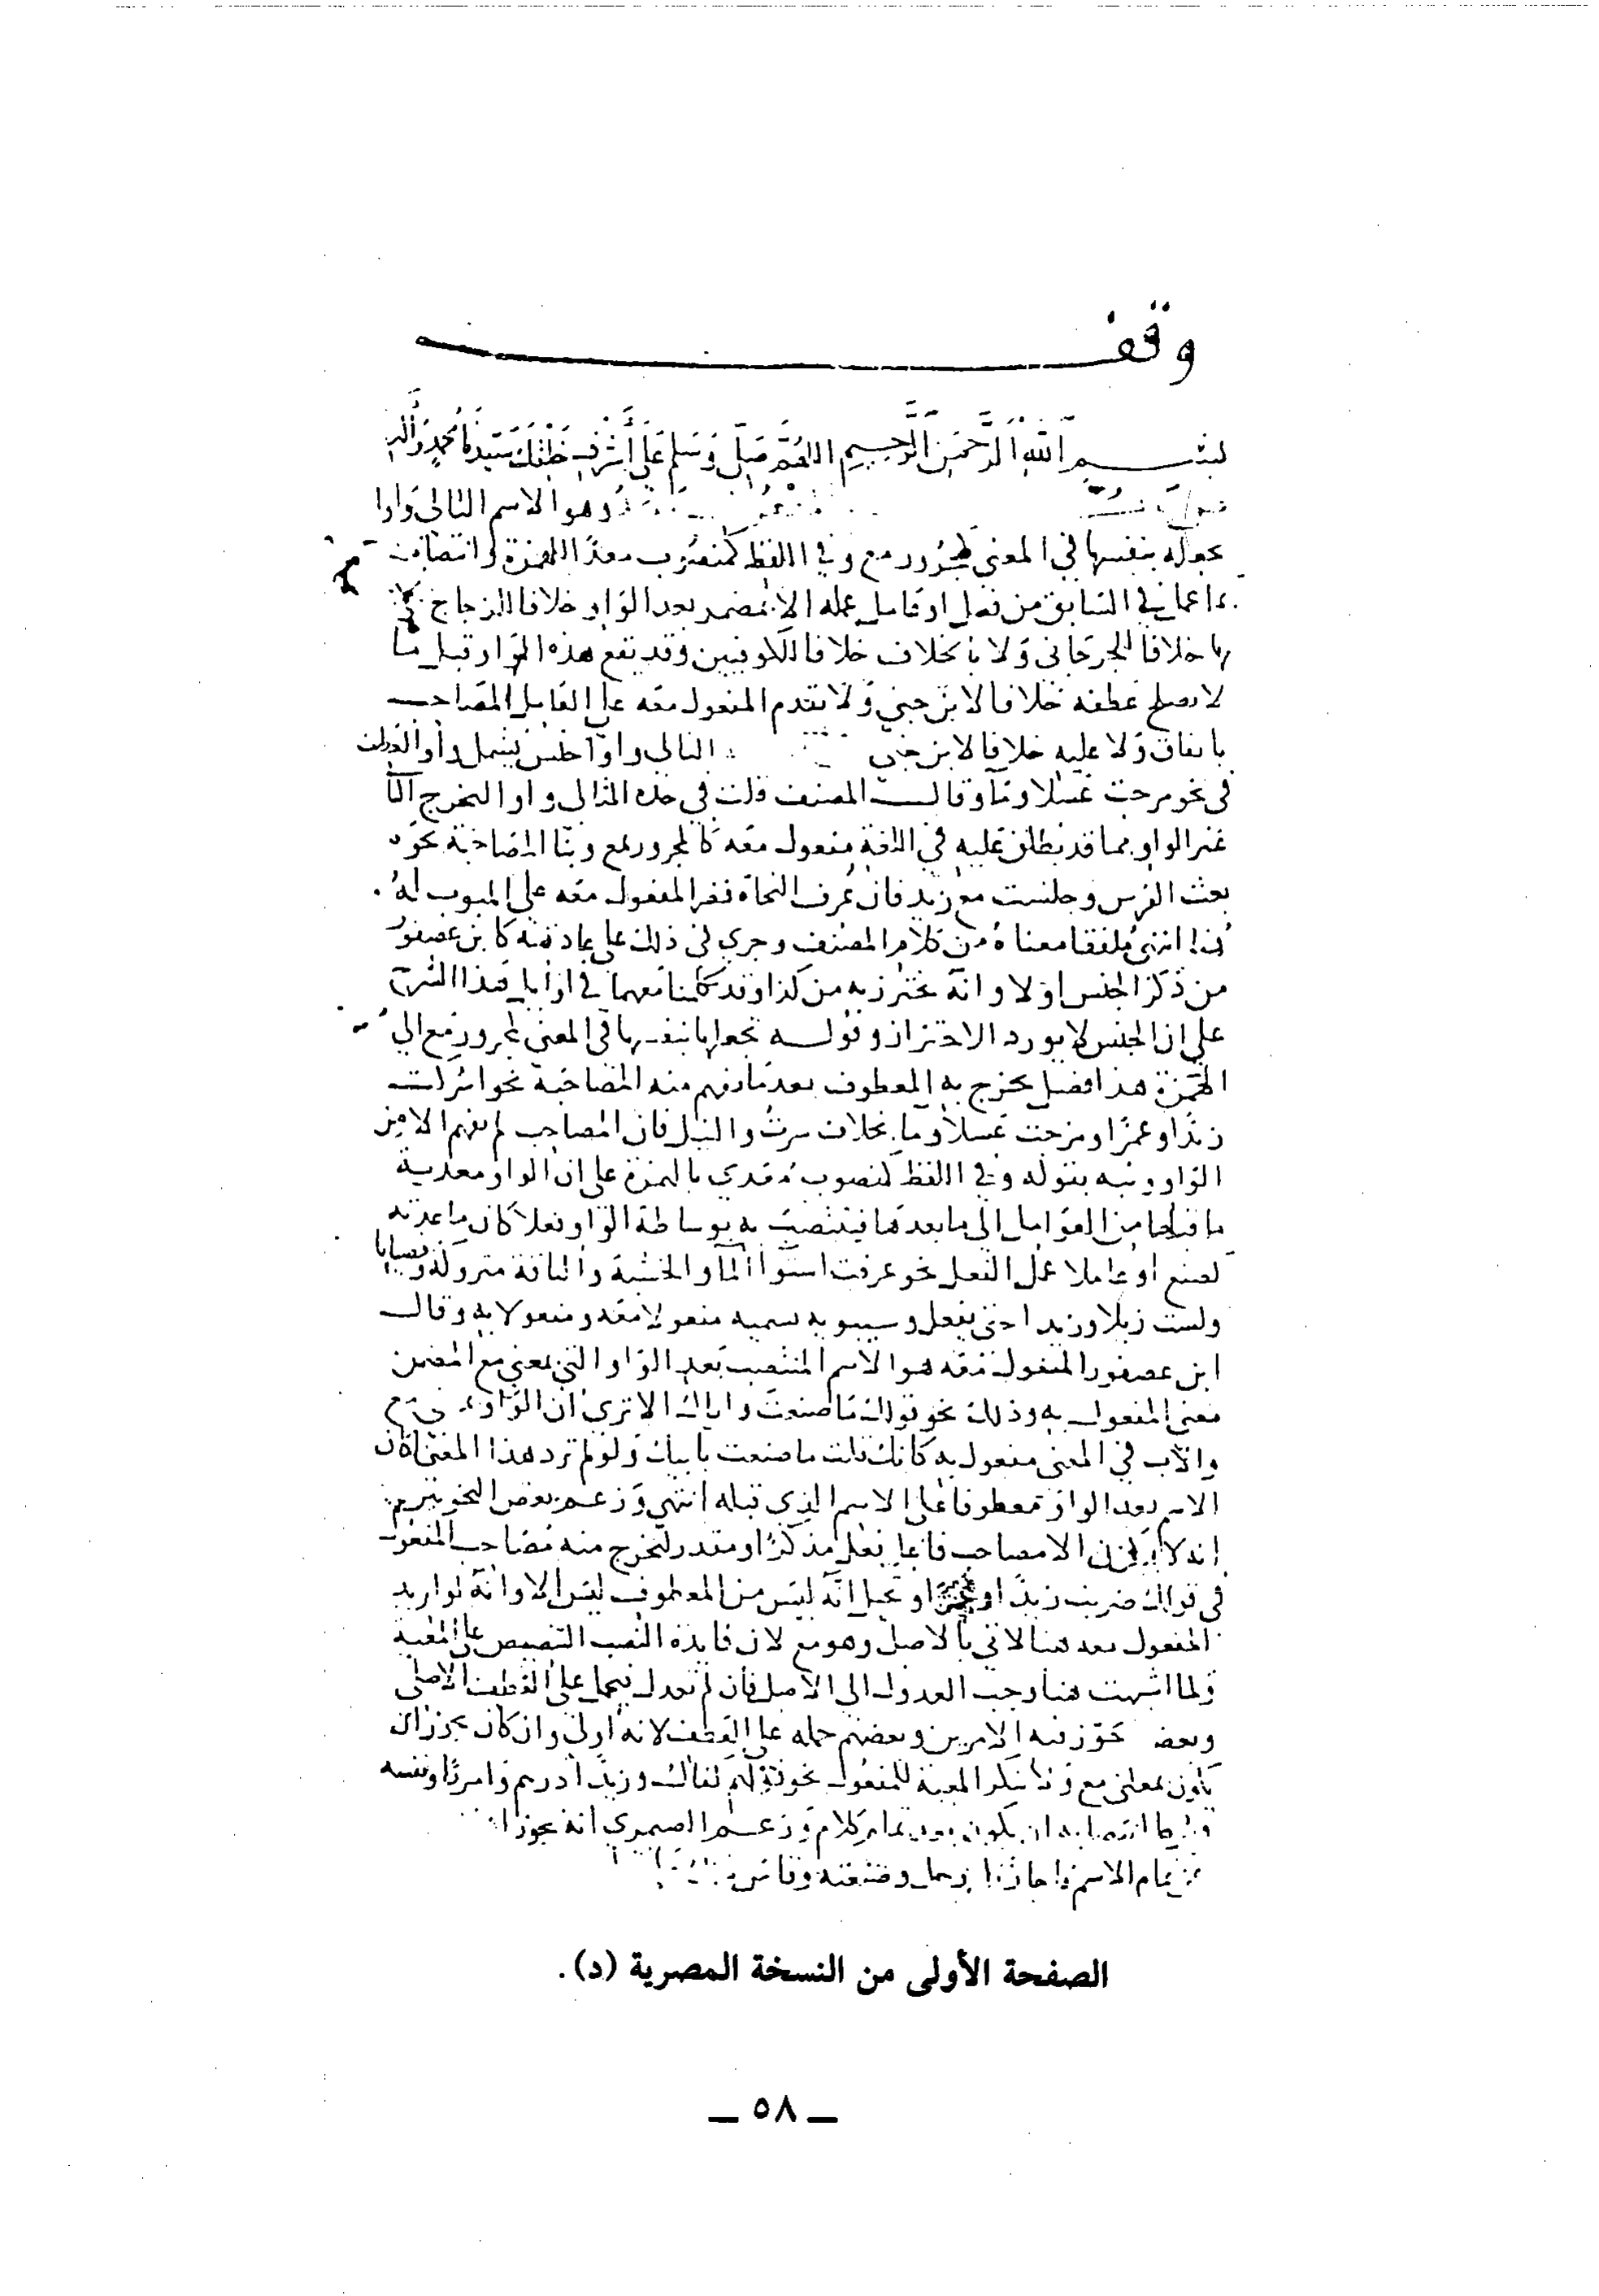 وقف
بسم الله الرحمن الرحيم اللهم صل وسلم على أشرف خلقك سيدنا محمد وآله
وهو الاسم التالي واوا
بنفسها في المعنى كمجرور مع وفي اللفظ كمنصوب معدا بالهمزة وانتصابه
بما عمل في السابق من فعل او عامل عمله لا بمضمر بعد الواو خلافا للزجاج
بها خلافا للجرجاني ولا بالخلاف خلافا للكوفيين وقد تقع هذه الواو قبل ما
لا يصلح عطفه خلافا لابن جني ولا يتقدم المفعول معه على العامل المصاحب
باتفاق ولا عليه خلافا لابن جني التالي واوا جنس يشمل واو العطف
في نحو مزجت عسلا وماء وقال المصنف قلت في هذه المثال واو المخرج التالي
غير الواو مما قد يطلق عليه في اللغة مفعول معه كالمجرور بمع وبباء المصاحبة نحو
بعت الفرس وجلست مع زيد فان عرف النحاة قصر المفعول معه على المبوب له
انتهى ملفقا معناه من كلام المصنف وجرى في ذلك على عادته كابن عصفور
من ذكر الجنس اولا وانه يحترز به من كذا وقد تكلمنا معهما في اوايل هذا الشرح
على ان الجنس لا يورد الاحتراز وقوله بنفسها في المعنى كمجرور مع الى
الهمزة هذا فصل يخرج به المعطوف بعد ما يفهم منه المصاحبة نحو اشركت
زيدا وعمرا ومزجت عسلا وماء بخلاف سرت والنيل فان المصاحب لم يفهم الا من
الواو ونبه بقوله وفي اللفظ كمنصوب معدى بالهمزة على ان الواو معدية
ما قبلها من العوامل الى ما بعدها فينتصب به بوساطة الواو فعلا كان ما عدته
كصنع او عاملا عمل الفعل نحو عرفت استوا الما والخشبة والناقة متروكة وفصيلها
ولست زيلا وزيدا حتى يفعل وسيبويه يسميه مفعولا معه ومفعولا به وقال
ابن عصفور المفعول معه هو الاسم المنتصب بعد الواو التي بمعنى مع المضمن
معنى المفعول به وذلك نحو قولك ما صنعت واباك الا ترى ان الواو بمعنى مع
والاب في المعنى مفعول به كانك قلت ما صنعت بابيك ولو لم ترد هذا المعنى كان
الاسم بعد الواو معطوفا على الاسم الذي قبله انتهى وزعم بعض النحويين
انه لا يكون الا مصاحب فاعل بفعل مذكور او مقدر ليخرج منه مصاحب المفعول
في قولك ضربت زيدا وعمرا وتخيل انه ليس من المعطوف ليس الا وانه لو اريد
المفعول معه هنا لاتي بالاصل وهو مع لان فايدة النصب التنصيص على المعية
ولما اشبهت هنا وجب العدول الى الاصل فان لم تعدل فيحمل على العطف الاصلي
وبعض جوز فيه الامرين وبعضهم حمله على العطف لانه اولى وان كان يجوز ان
يكون بمعنى مع ولا ينكر المعية للمفعول نحو قولهم كفاك وزيدا درهم وامرءا ونفسه
انتصابه ان يكون بعد تمام كلام وزعم الصيمري انه يجوز
تمام الاسم فاجاز كل رجل وضيعته وقاس
الصفحة الأولى من النسخة المصرية (د).
ــ ٥٨ ــ